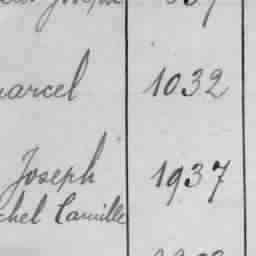 Joseph
arcel 1032
Joseph 1937
chel Camille